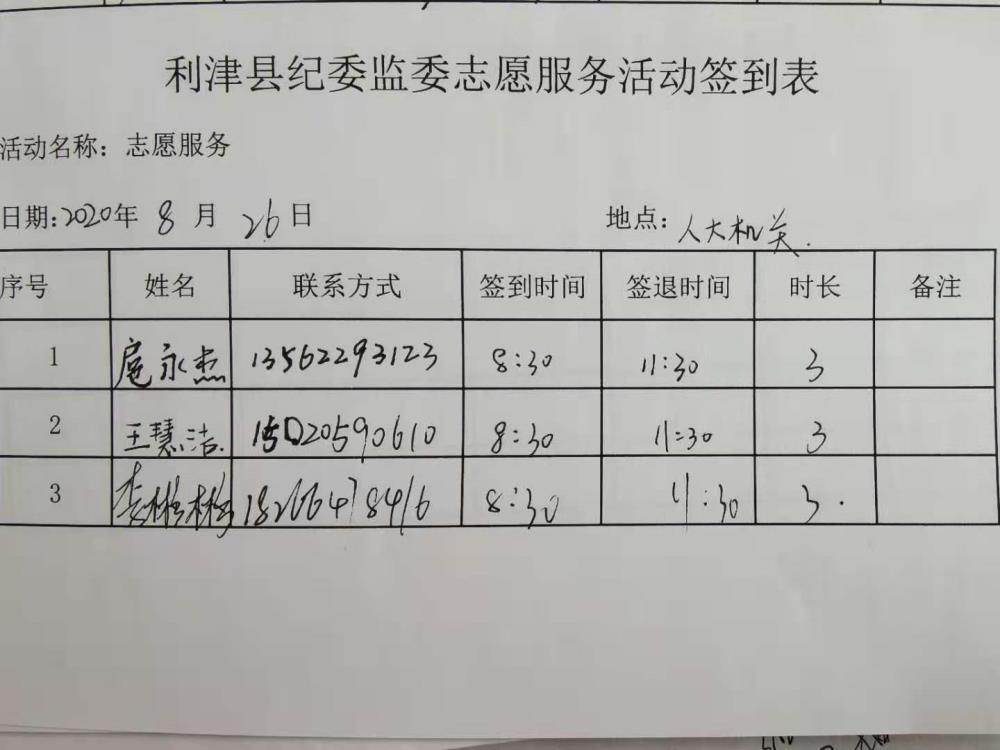 利津县纪委监委志愿服务活动签到表
活动名称：志愿服务
日期:2020年 8 月 26 日 地点：人大机关.
序号 姓名 联系方式 签到时间 签退时间 时长 备注
1 扈永杰 13562293123 8:30 11:30 3
2 王慧洁 15020590610 8:30 11:30 3
3 李彬彬 18266478416 8:30 11:30 3.